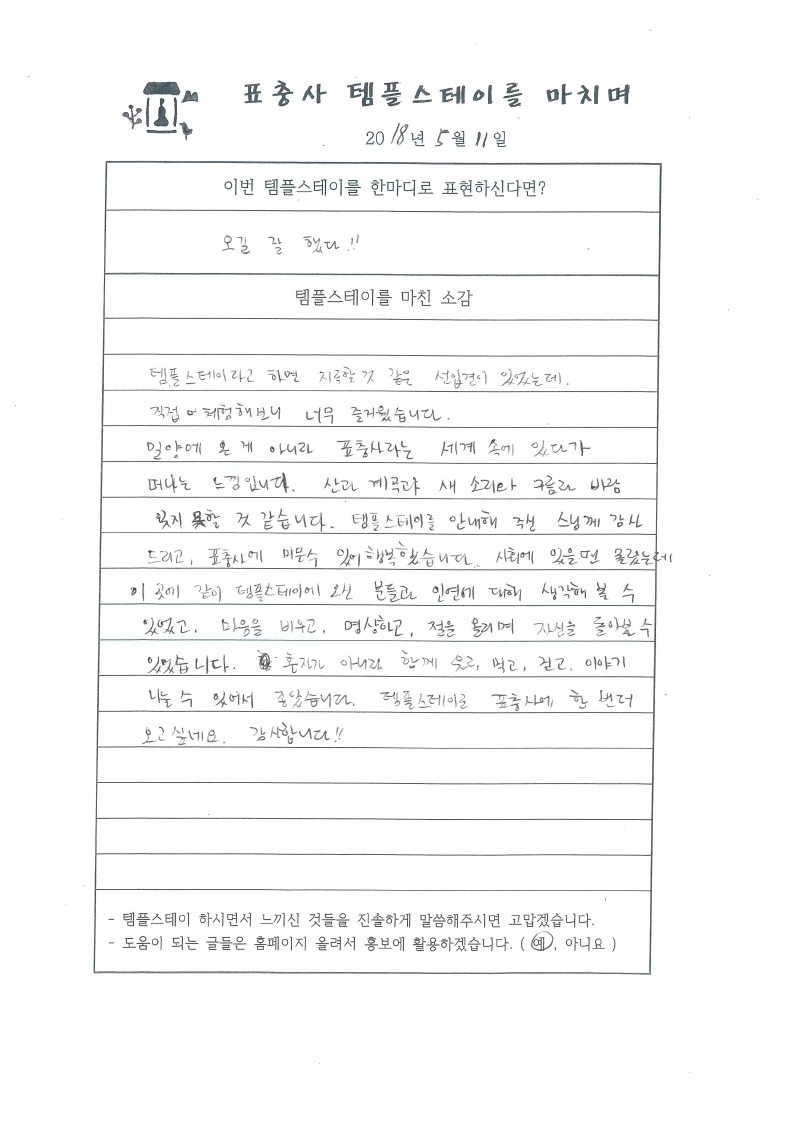 표충사 템플스테이를 마치며
2018년 5월 11일
이번 템플스테이를 한마디로 표현하신다면?
오길 잘 했다!!
템플스테이를 마친 소감
템플스테이라고 하면 지루할것 같은 선입견이 있었는데.
직접 체험해보니 너무 즐거웠습니다.
밀양에 온 게 아니라 표충사라는 세계 속에 있다가
떠나는 느낌입니다. 산과 계곡과 새 소리와 구름과 바람
잊지 못할 것 같습니다. 템플스테이를 안내해 주신 스님께 감사
드리고, 표충사에 머문수 있어 행복했습니다. 사회에 있을땐 몰랐는데
이 곳에 같이 템플스테이에 오신 분들과 인연에 대해 생각해 볼 수
있었고, 마음을 비우고, 명상하고, 절을 올리며 자신을 돌아볼 수
있었습니다. 혼자가 아니라 함께 웃고, 먹고, 걷고, 이야기
나눌 수 있어서 좋았습니다. 템플스테이로 표충사에 한 번더
오고 싶네요. 감사합니다!!
- 템플스테이 하시면서 느끼신 것들을 진솔하게 말씀해주시면 고맙겠습니다.
- 도움이 되는 글들은 홈페이지 올려서 홍보에 활용하겠습니다. ( 예, 아니요 )